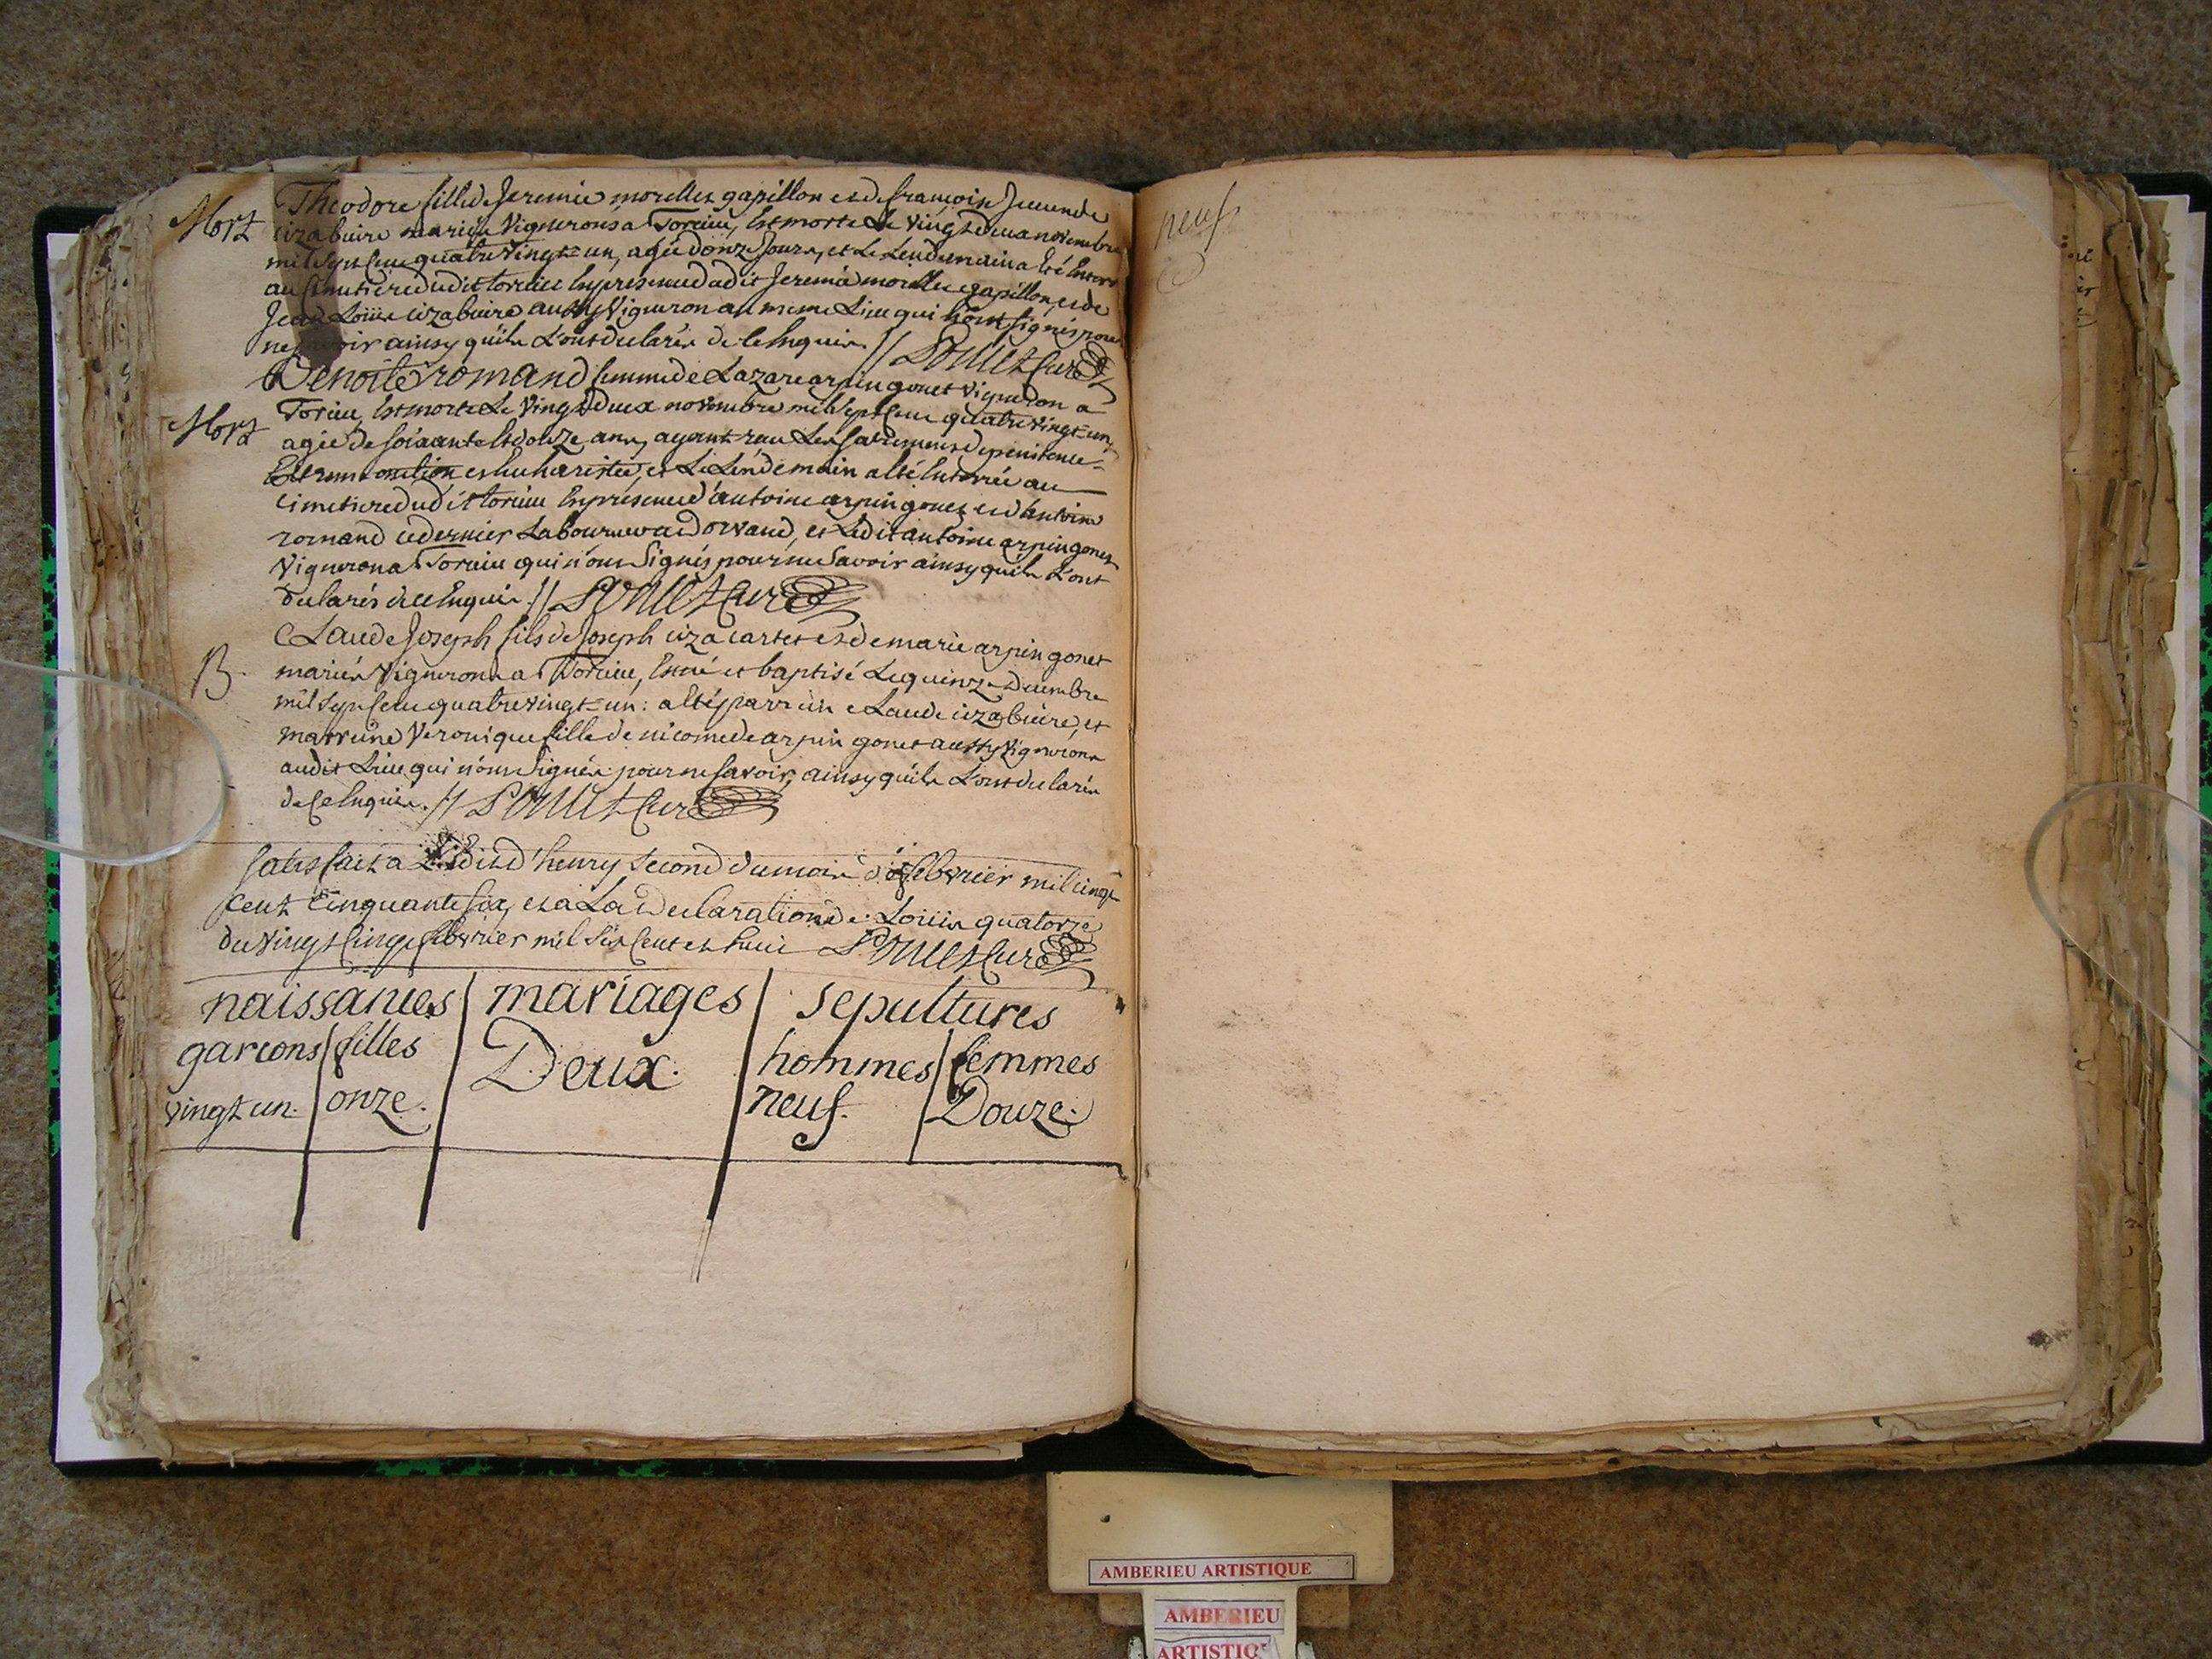 Mort
Theodore fille de Jeremie morellet gapillon et de francoise Secunde
cizabuire mariés Vignerons a Torcieu, Est morte Le Vingt deux novembre
mil Sept Cent quatre Vingt=un, agée d'onze Jours, et Le Lendemain a Eté Enterr
au Cimetiere dudit torcieu En présence dudit Jeremie morellet gapillon, et de
Jean Loüis cizabuire aussy Vigneron au meme Lieu qui n'ont signés pour
ne savoir ainsy qu'ils L'ont declarés de ce Enquis // Ponlet Curé
Mort
Benoite romand femme de Lazare arpin gonet Vigneron a
Torcieu, Est morte Le Vingt Deux novembre mil Sept Cent quatre Vingt=un,
agée de soixante Et douze ans, ayant reçu Les Sacremens de penitence
Extreme onction et Euharistie, et Le Lendemain a Eté Enterrée au
Cimetiere dudit torcieu En présence d'antoine arpin gonet et d'antoine
romand ce dernier Laboureur a dorvand, et Ledit antoine arpin gonet
Vigneron a Torcieu qui n'ont Signés pour ne Savoir ainsy qu'ils L'ont
declarés de ce Enquis // Ponlet Curé
B.
Claude Joseph fils de Joseph ciza cartet et de marie arpin gonet
mariés Vignerons a Torcieu, Est né et baptisé Le quinze Decembre
mil Sept Cent quatre vingt=un: a Eté parrain Claude cizabuire, et
marreine Veronique fille de nicomede arpin gonet aussy Vignerons
audit Lieu qui n'ont Signés pour ne savoir, ainsy qu'ils L'ont declarés
de Ce Enquis. // Ponlet Curé
Satisfait a L'Edit d'henry Second du mois de febvrier mil cinq
Cent Cinquante six, et a La Declaration de Loüis quatorze
du Vingt Cinq febvrier mil Sept Cent et huit Ponlet Curé
naissances | mariages | sepultures
garcons | filles | Deux. | hommes | femmes
vingt un. | onze. | neuf. | Douze.
neuf
AMBERIEU ARTISTIQUE
AMBERIEU